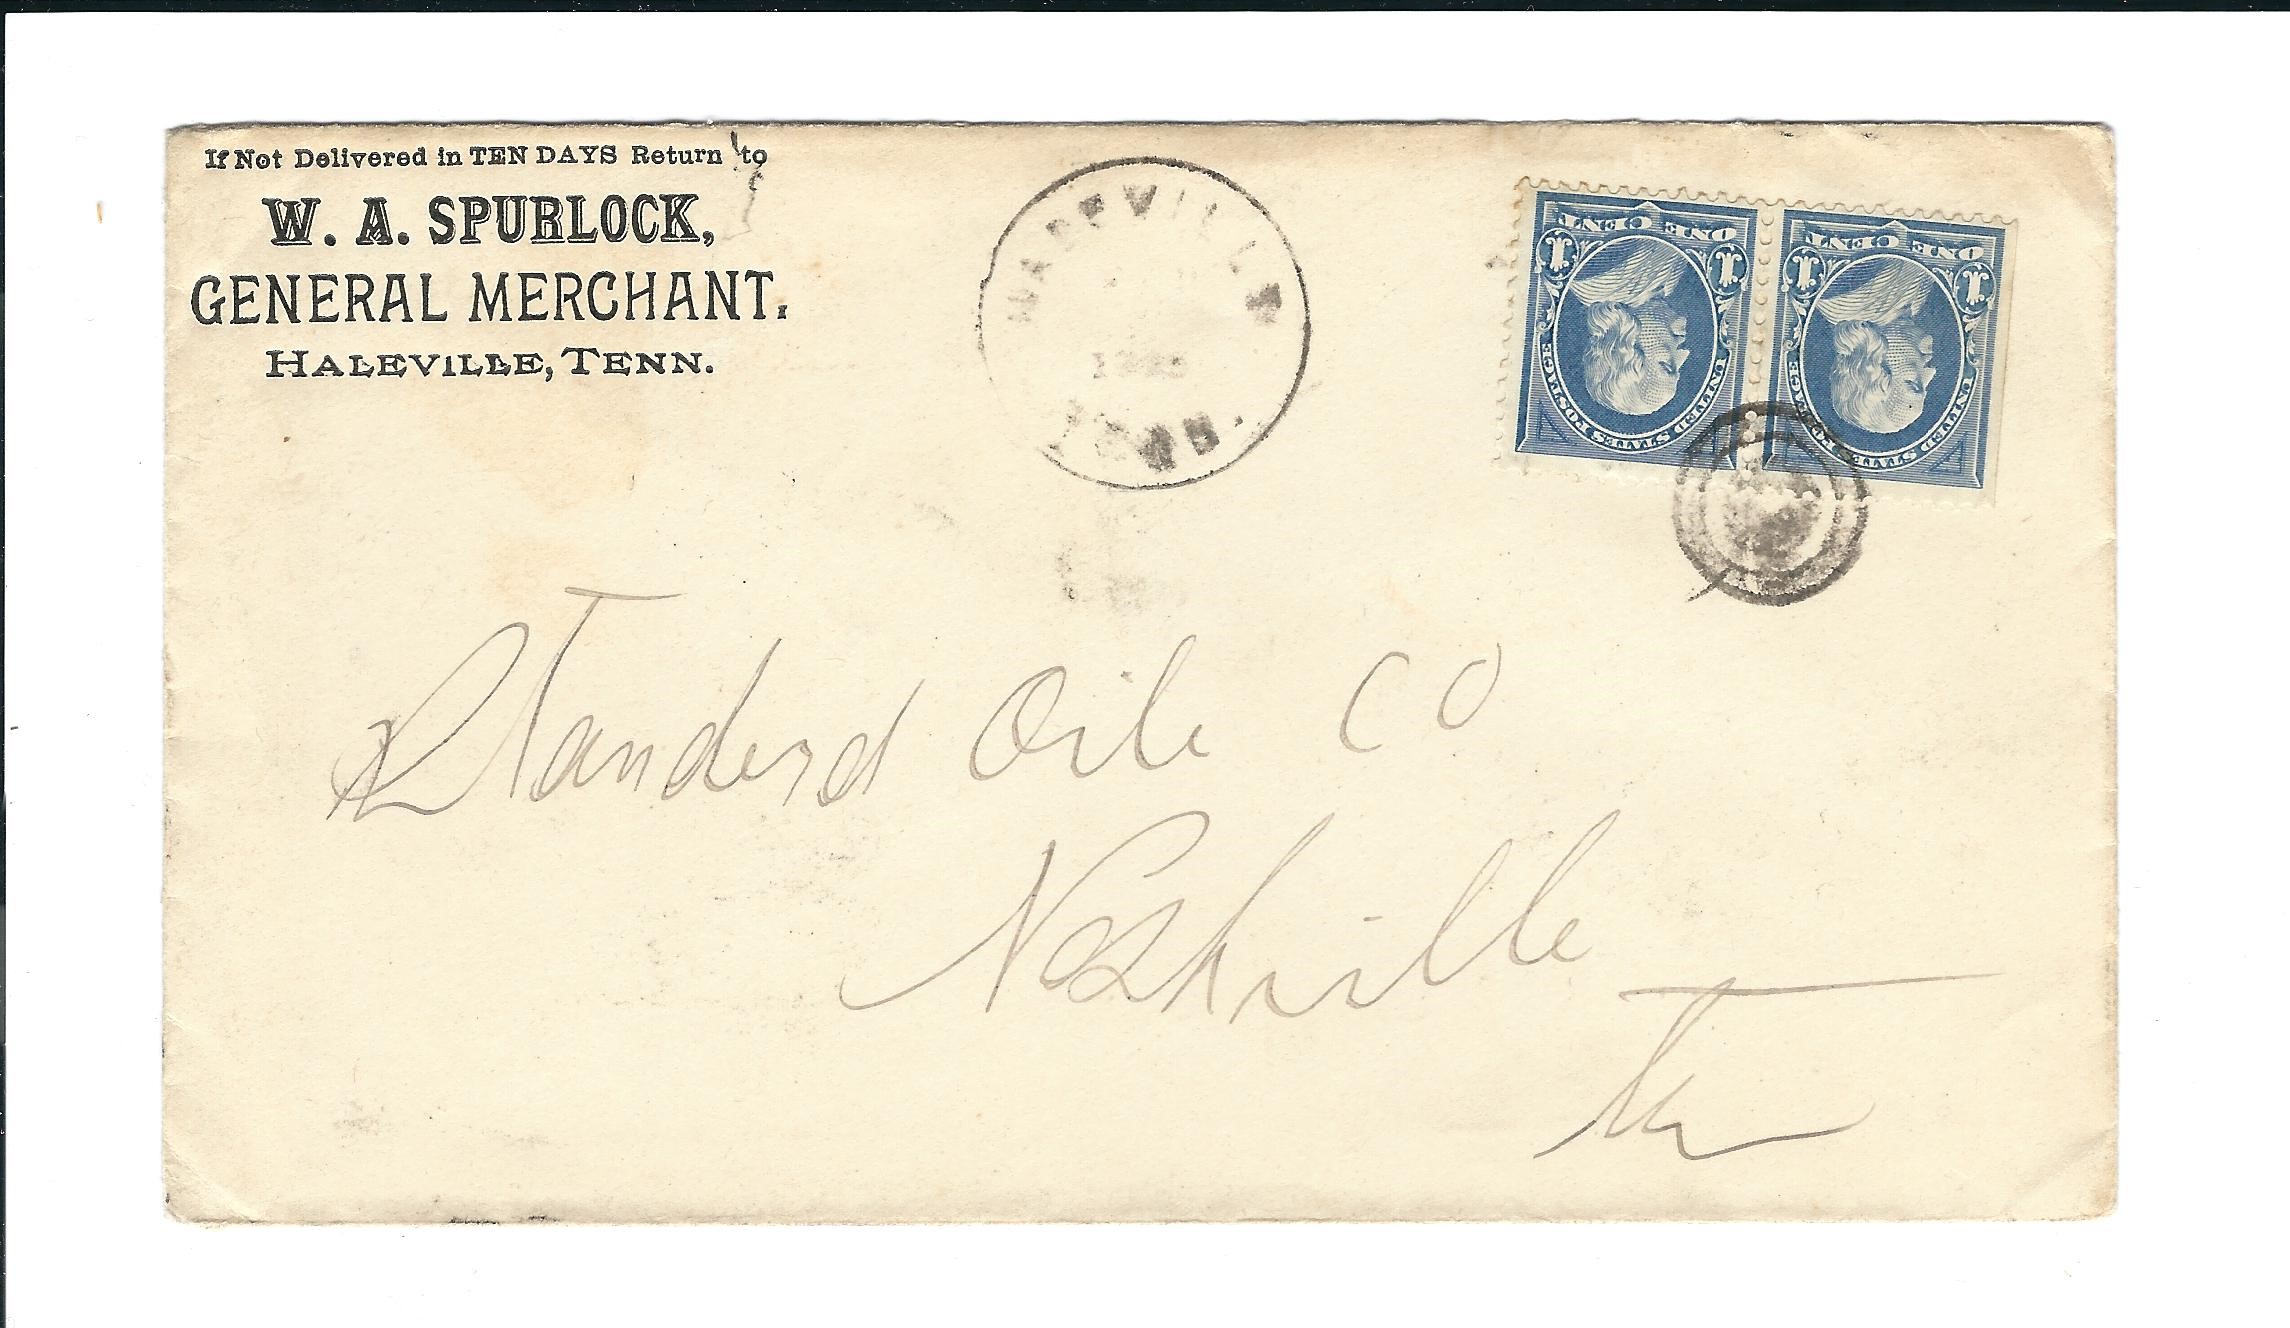 If Not Delivered in TEN DAYS Return to
W. A. SPURLOCK,
GENERAL MERCHANT.
HALEVILLE, TENN.
TENN.
ONE CENT
1 1
UNITED STATES POSTAGE
ONE CENT
1 1
UNITED STATES POSTAGE
Standerd Oile Co
Nashville